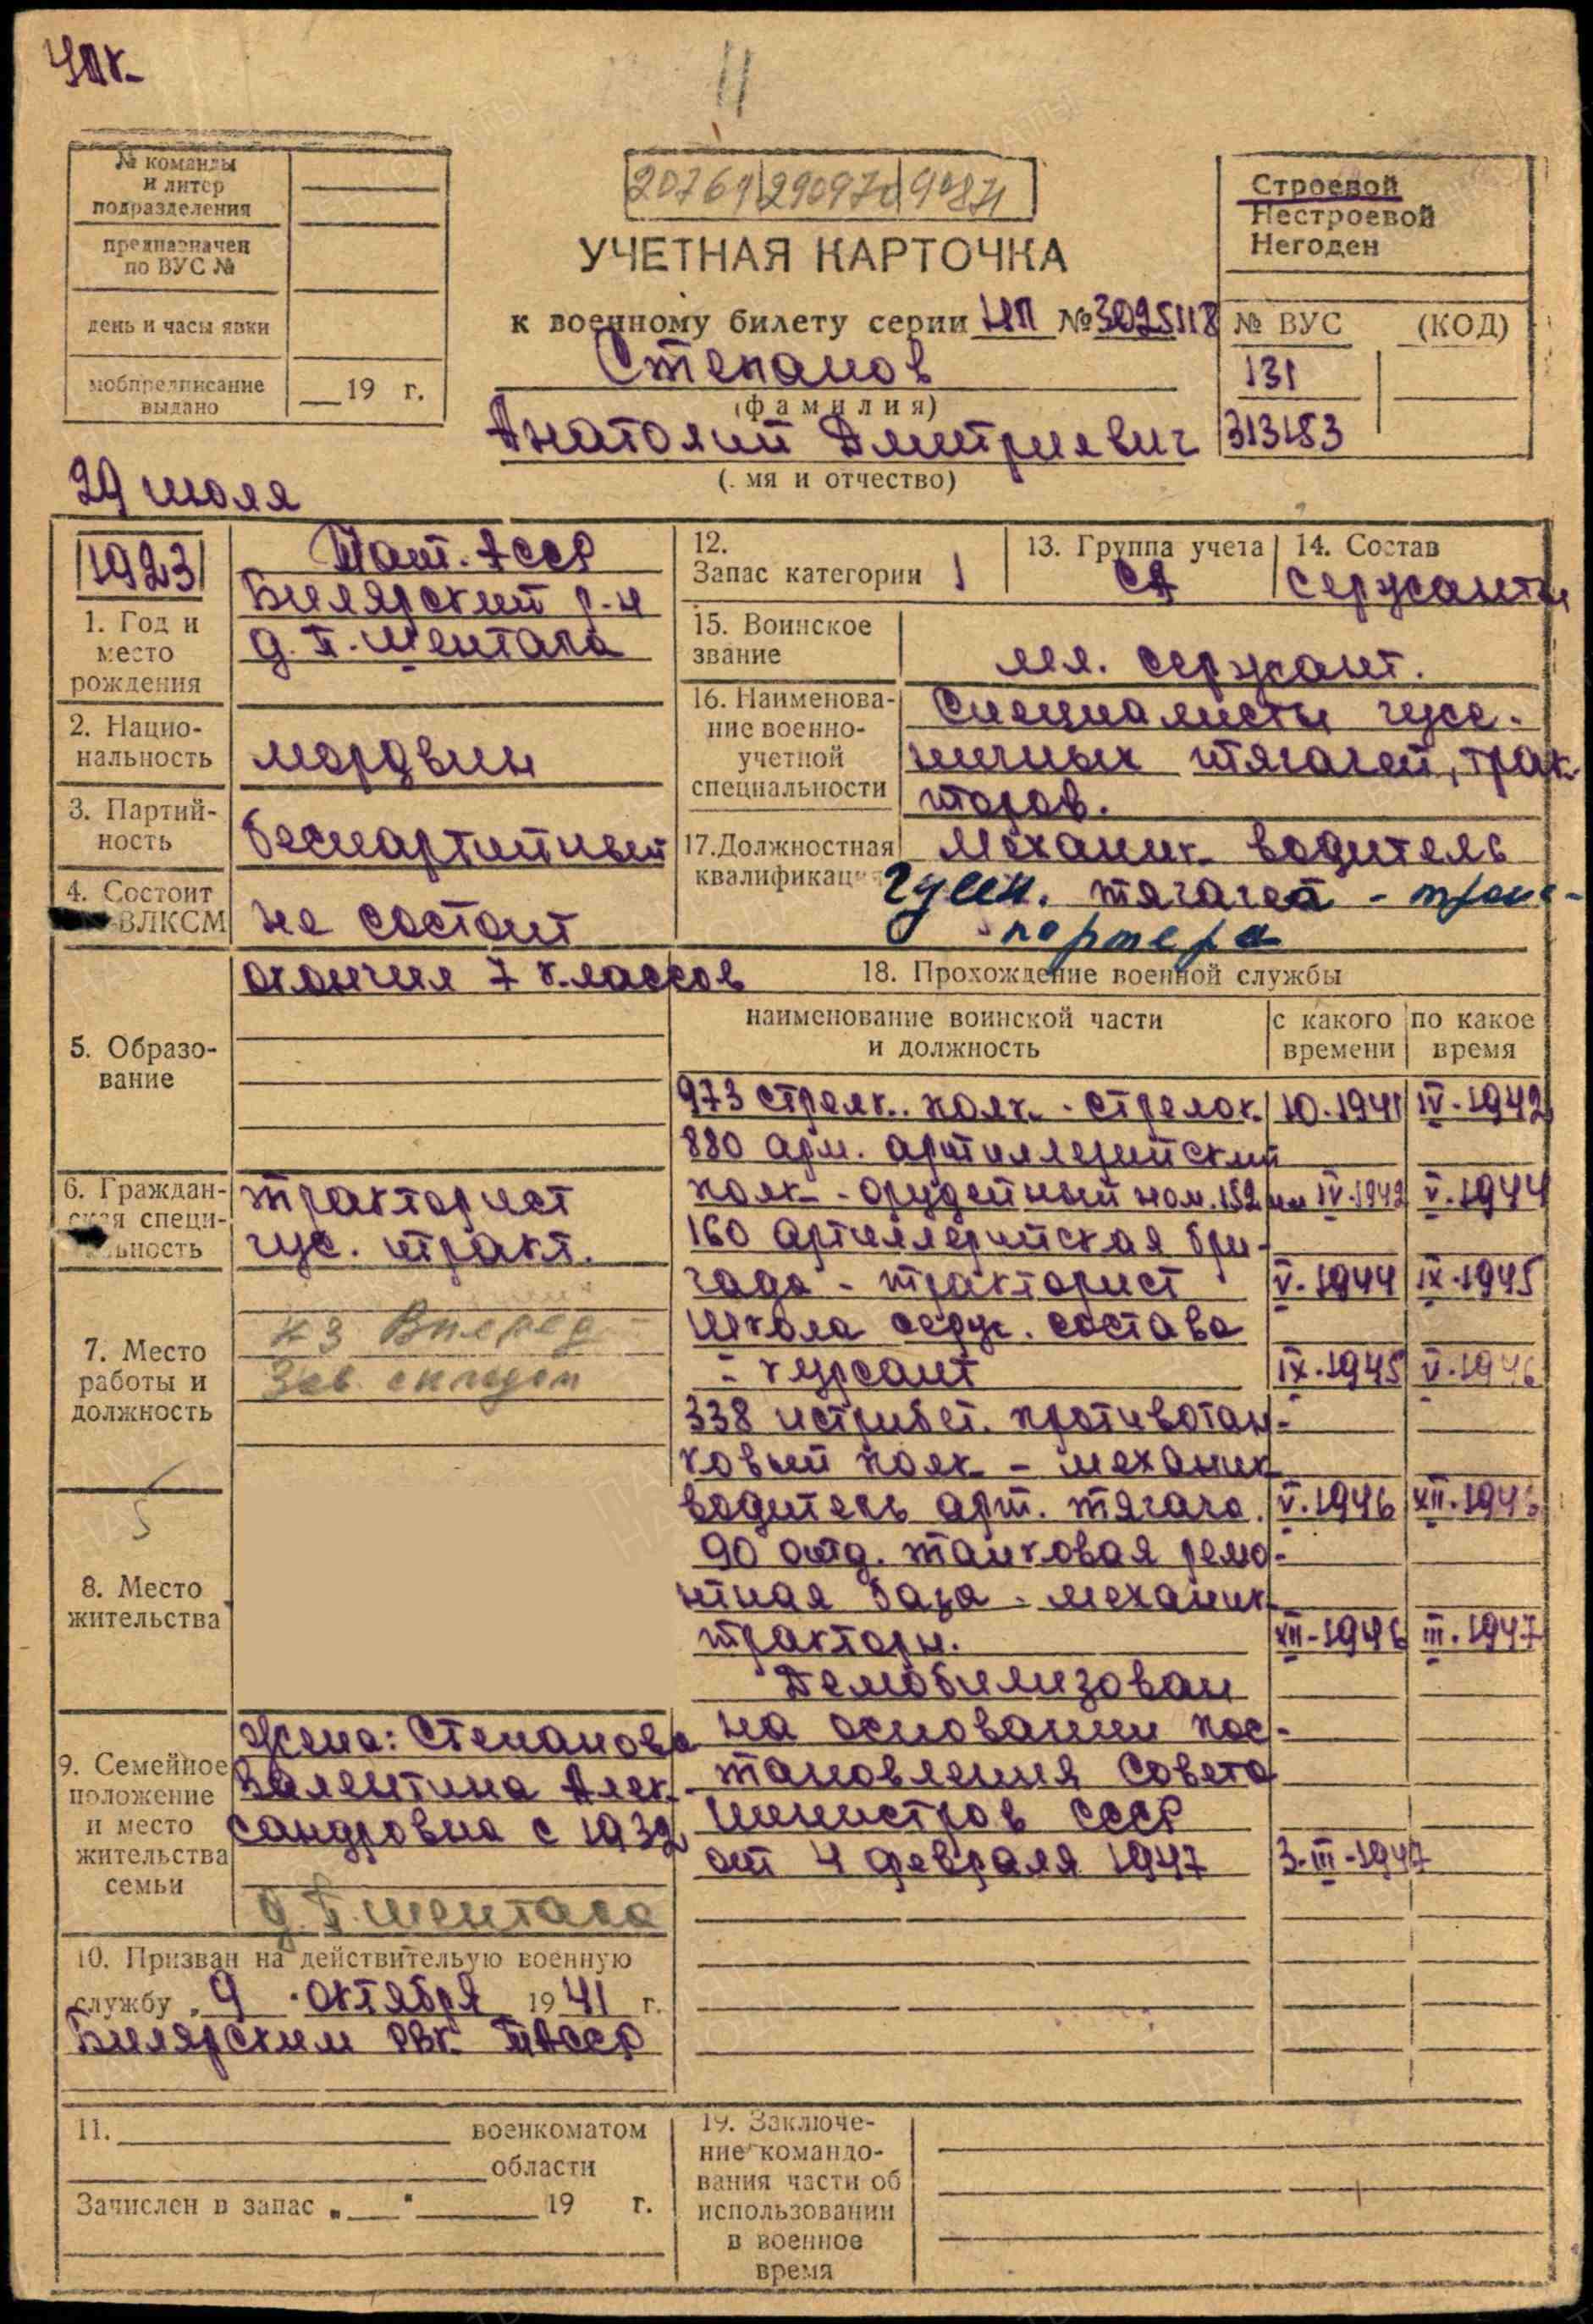 11
№ команды
и литер
подразделения
предназначен
по ВУС №
день и часы явки
мобпредписание
выдано
19 г.
УЧЕТНАЯ КАРТОЧКА
к военному билету серии НП № 3025118
Степанов
(фамилия)
Анатолий Дмитриевич
(. мя и отчество)
Строевой
Нестроевой
Негоден
№ ВУС (КОД)
131
313183
29 июля
1923
1. Год и
место
рождения
Тат. АССР
Билярский р-н
д. Т. Шентала
2. Нацио-
нальность
мордвин
3. Партий-
ность
беспартийный
4. Состоит
ВЛКСМ
не состоит
5. Образо-
вание
окончил 7 классов
6. Граждан-
ская специ-
льность
тракторист
гус. тракт.
7. Место
работы и
должность
кз Вперед
Зав. складом
5
8. Место
жительства
9. Семейное
положение
и место
жительства
семьи
Жена: Степанова
Валентина Алек-
сандровна с 1932
д. Т. Шентала
10. Призван на действительую военную
службу „ 9 " октября 1941 г.
Билярским РВК ТАССР
11. военкоматом
области
Зачислен в запас „ " 19 г.
12.
Запас категории 1
13. Группа учета
СА
14. Состав
Сержанты
15. Воинское
звание
мл. сержант.
16. Наименова-
ние военно-
учетной
специальности
Специалисты гусе-
ничных тягачей, трак-
торов.
17. Должностная
квалификация
Механик водитель
гусен. тягача - транс-
портера
18. Прохождение военной службы
наименование воинской части
и должность
с какого
времени
по какое
время
973 стрелк. полк - стрелок 10.1941 IV.1942
880 арм. артиллерийский
полк - орудейный ном. 152 мм IV.1942 V.1944
160 Артиллерийская бри-
гада - тракторист V.1944 IX.1945
Школа серж. состава
- курсант IX.1945 V.1946
338 истребит. противотан-
ковый полк - механик
водитель арт. тягача. V.1946 XII.1946
90 отд. танковая ремо-
нтная база - механик
тракторн. XII-1946 III.1947
Демобилизован
на основании пос-
тановления Совета
Министров СССР
от 4 февраля 1947 3-III-1947
19. Заключе-
ние командо-
вания части об
использовании
в военное
время